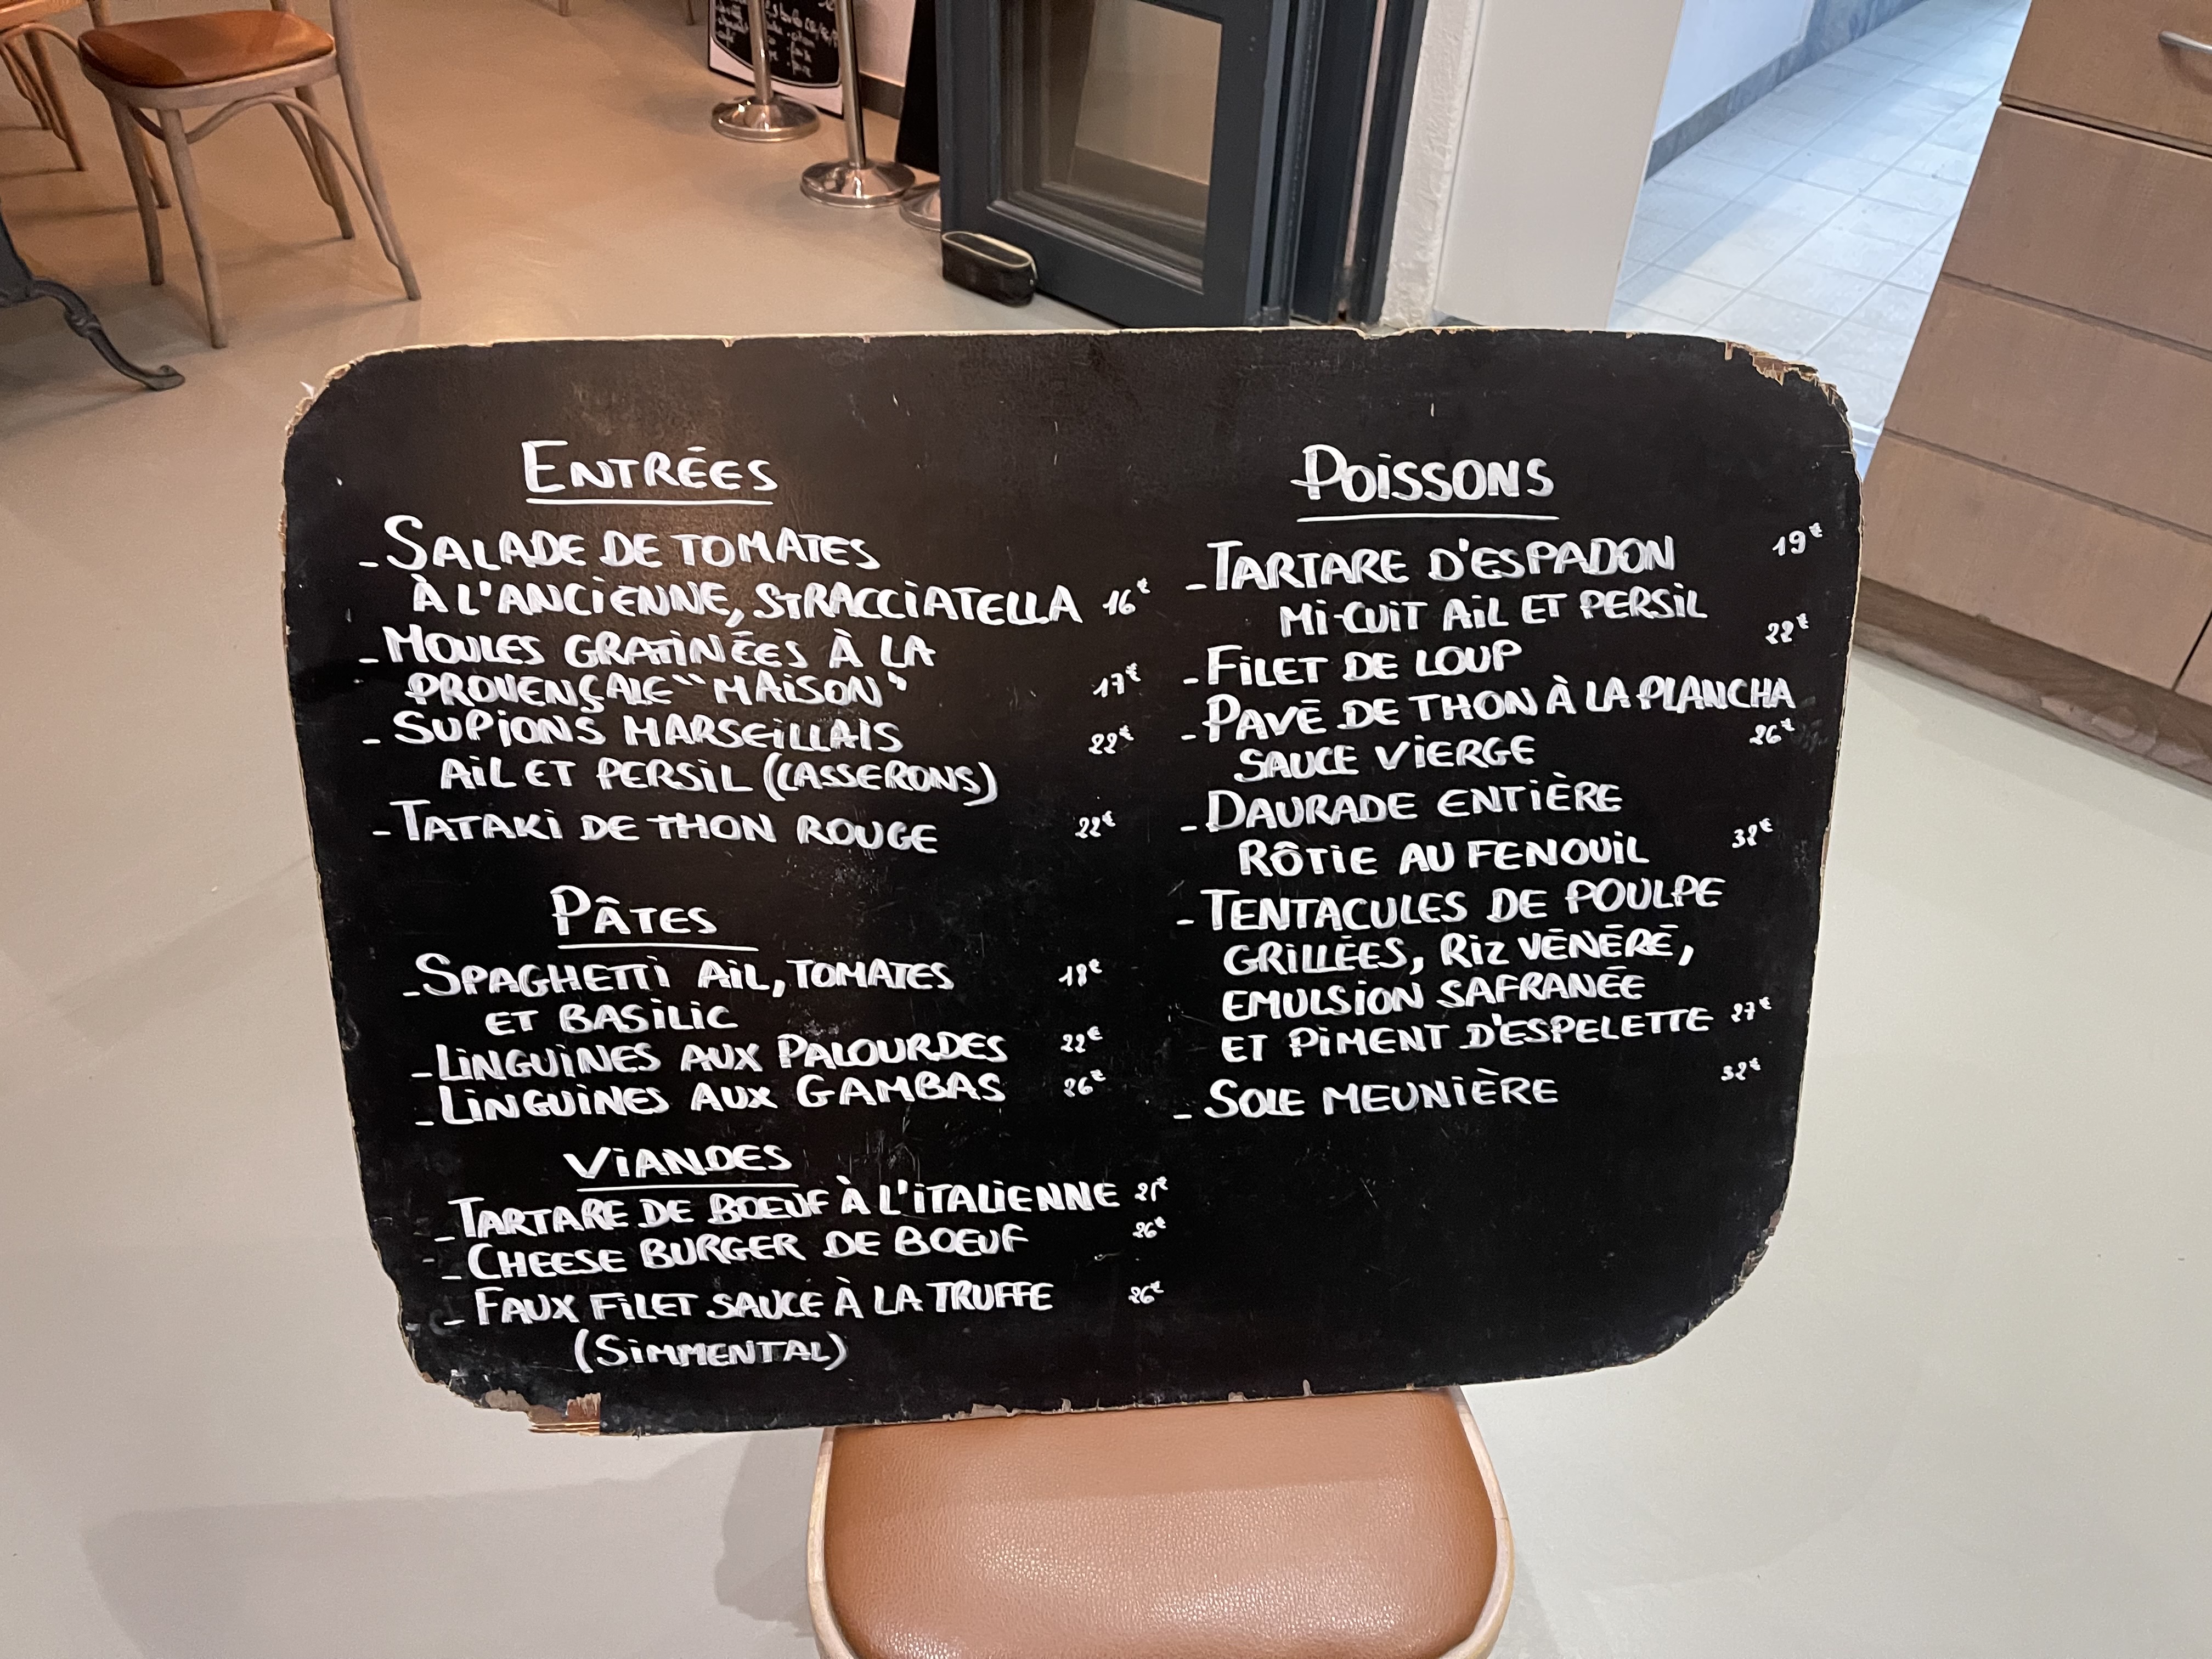 ENTRÉES
- SALADE DE TOMATES
À L'ANCIENNE, STRACCIATELLA 16€
- MOULES GRATINÉES À LA
PROVENÇALE "MAISON" 17€
- SUPIONS MARSEILLAIS 22€
AIL ET PERSIL (CASSERONS)
- TATAKI DE THON ROUGE 22€
PÂTES
- SPAGHETTI AIL, TOMATES 18€
ET BASILIC
- LINGUINES AUX PALOURDES 22€
- LINGUINES AUX GAMBAS 26€
VIANDES
- TARTARE DE BŒUF À L'ITALIENNE
- CHEESE BURGER DE BŒUF 26€
- FAUX FILET SAUCE À LA TRUFFE 26€
(SIMMENTAL)
POISSONS
- TARTARE D'ESPADON 19€
MI-CUIT AIL ET PERSIL
- FILET DE LOUP 22€
- PAVÉ DE THON À LA PLANCHA
SAUCE VIERGE 26€
- DAURADE ENTIÈRE
RÔTIE AU FENOUIL 32€
- TENTACULES DE POULPE
GRILLÉES, RIZ VÉNÉRÉ,
EMULSION SAFRANÉE
ET PIMENT D'ESPELETTE 27€
- SOLE MEUNIÈRE 32€